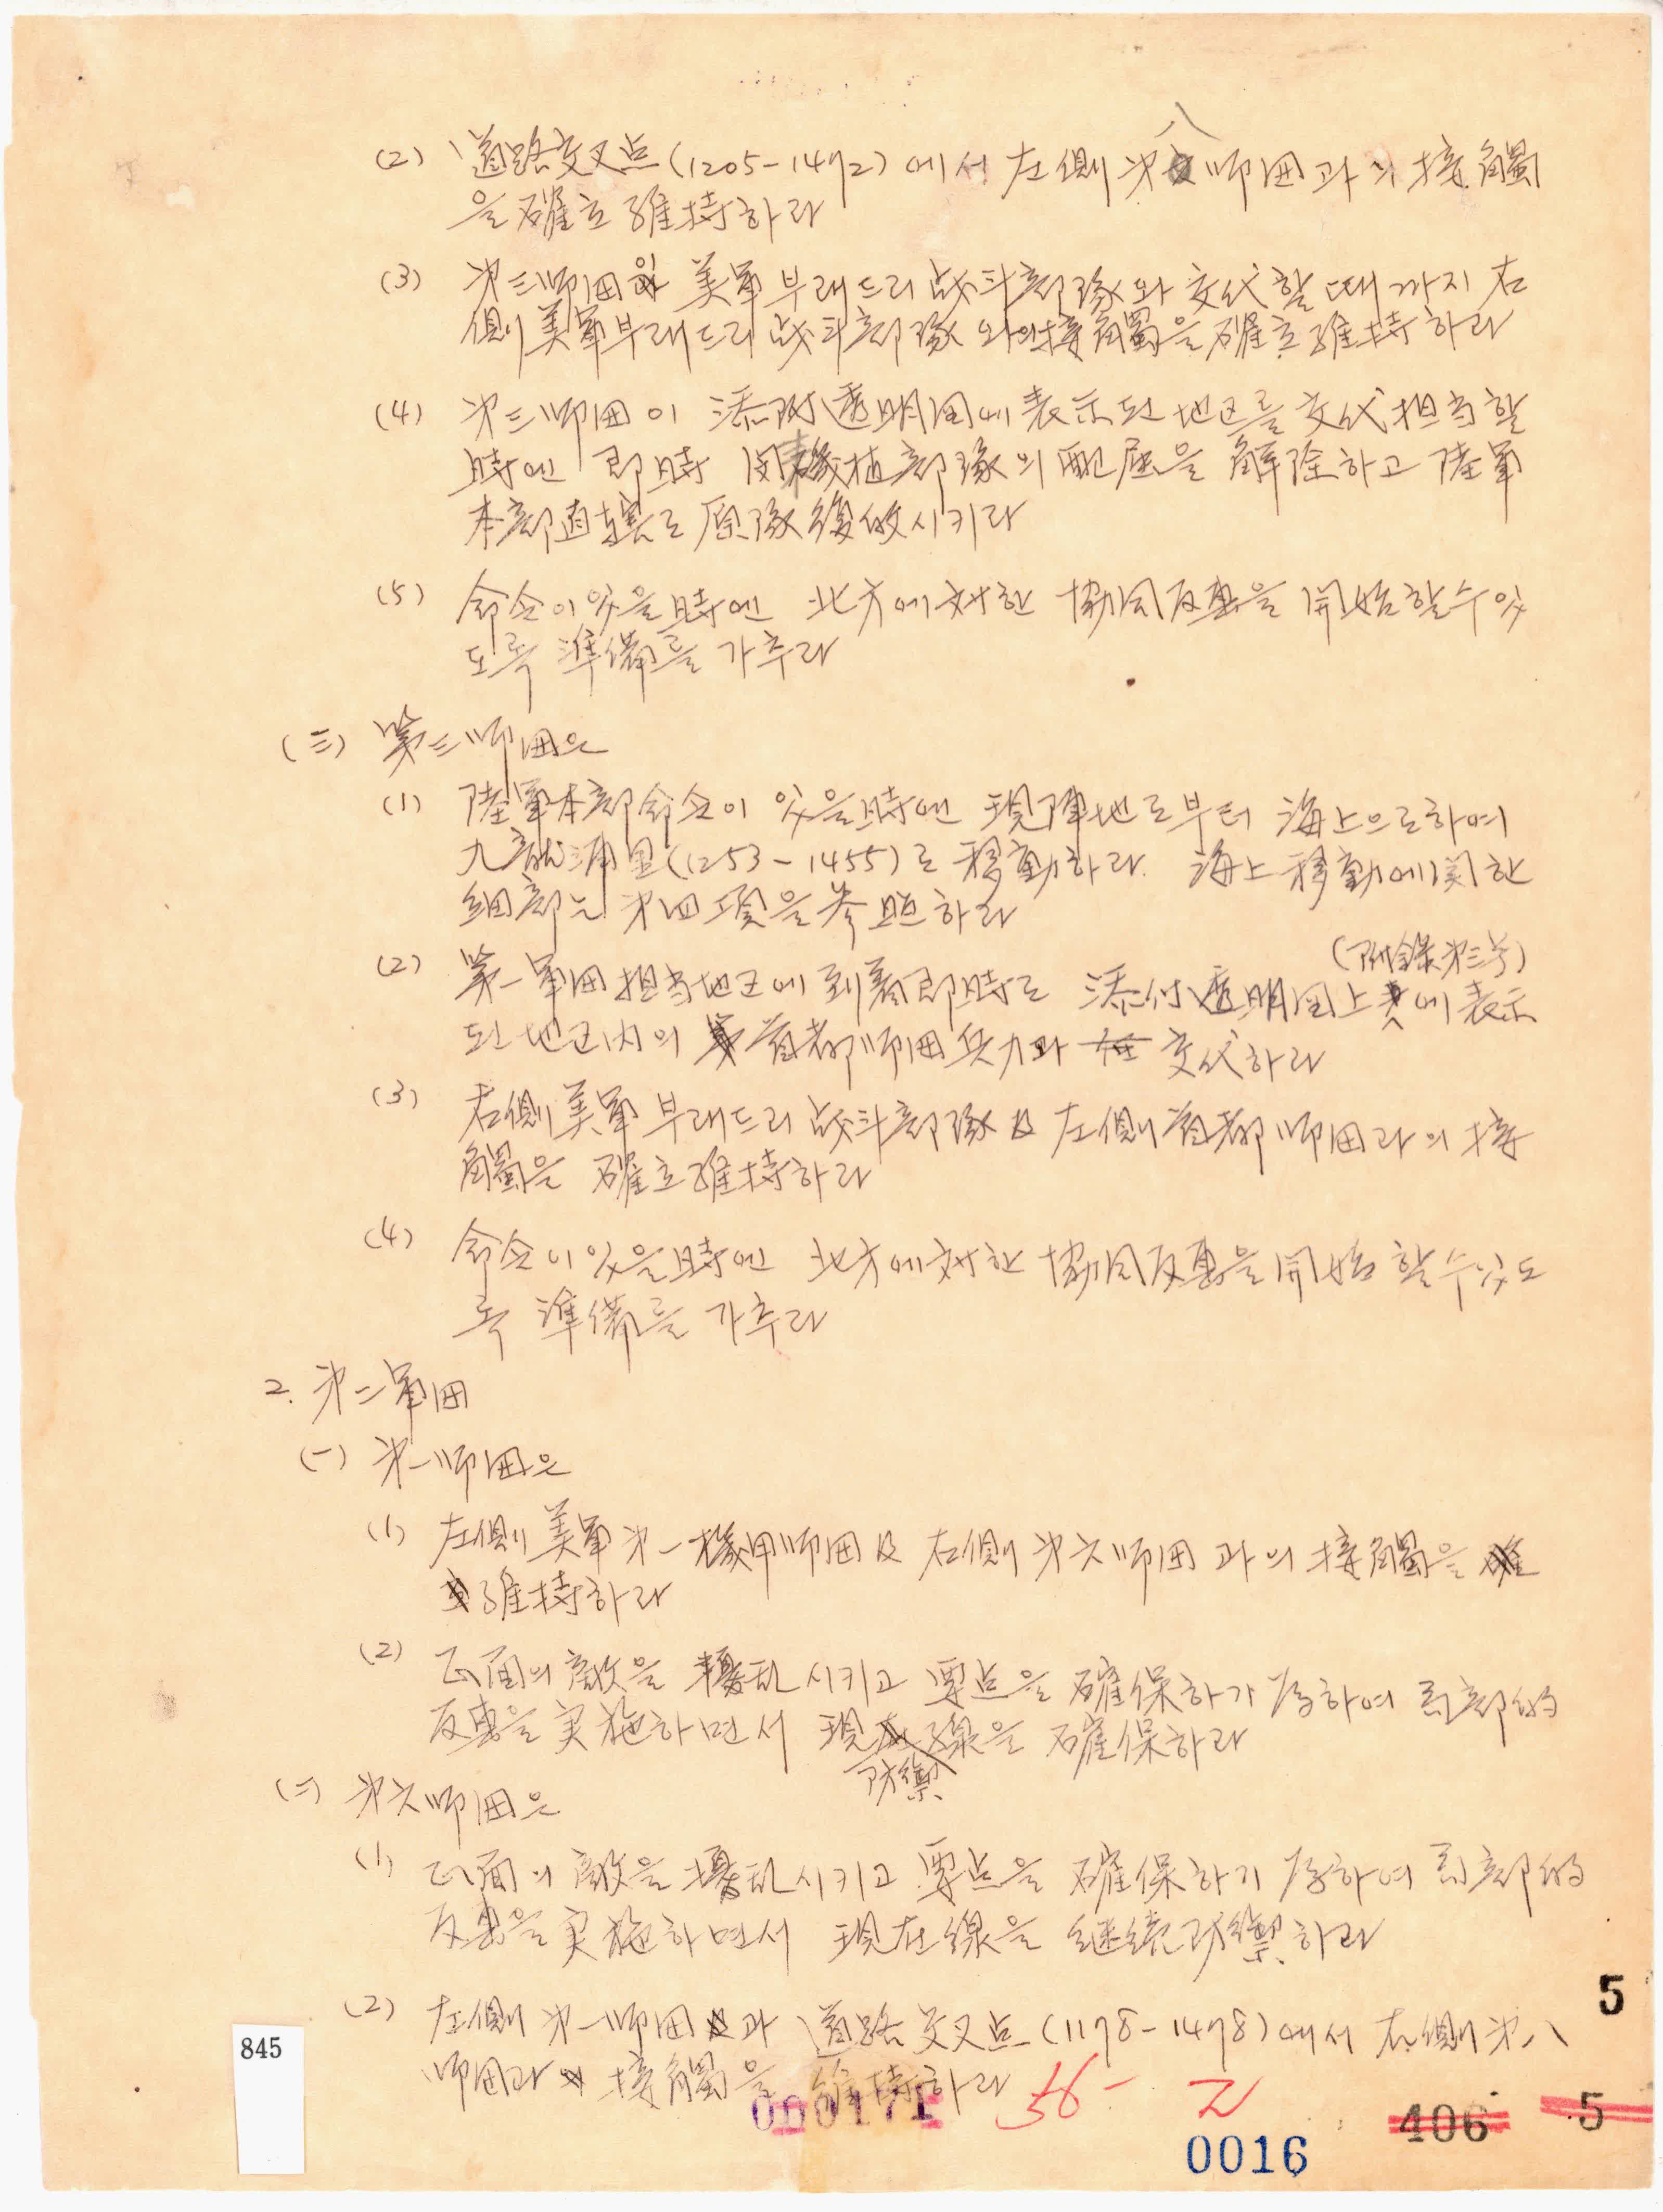 八
(2) 道路交叉点(1205-1472)에서 左側 第師団과의 接觸
을 確立維持하라
(3) 第三師団이 美軍 부래드리 战斗部隊와 交代할때까지 右
側美軍부래드리 战斗部隊와의接觸을 確立維持하라
(4) 第三师団이 添附透明図에 表示된 地区를 交代担当할
時엔 即時 閔機植部隊의 配屈을 解除하고 陸軍
本部直轄로 原隊復皈시키라
(5) 命令이있을時엔 北方에対한 協同反擊을 開始할수있
도록 準備를 가추라
(三) 第三师団은
(1) 陸軍本部命令이 있을時엔 現陣地로부터 海上으로하여
九龍浦里(1253-1455)로 移動하라. 海上移動에関한
細部는 第四項을 参照하라
(附録第三号)
(2) 第一軍団担当地区에 到着即時로 添付透明図上에 表示
된 地区内의 首都师団兵力과 交代하라
(3) 右側美軍 부래드리 战斗部隊 及 左側首都师団과의 接
觸을 確立維持하라
(4) 命令이있을時엔 北方에対한 協同反擊을 開始할수있도
록 準備를 가추라
2. 第二軍団
(一) 第一师団은
(1) 左側美軍第一機甲师団 及 右側第六师団과의 接觸을
維持하라
(2) 正面의敵을 擾乱시키고 要点을 確保하기 爲하여 局部的
反擊을 実施하면서 現線을 確保하라
防禦
(二) 第六师団은
(1) 正面의 敵을 擾乱시키고 要点을 確保하기 爲하여 局部的
反擊을 実施하면서 現在線을 継続防禦하라
(2) 左側 第一师団과 道路交叉点(1178-1478)에서 右側第八
师団과 接觸을 維持하라
5
845
000171
56- 2
0016
406
5